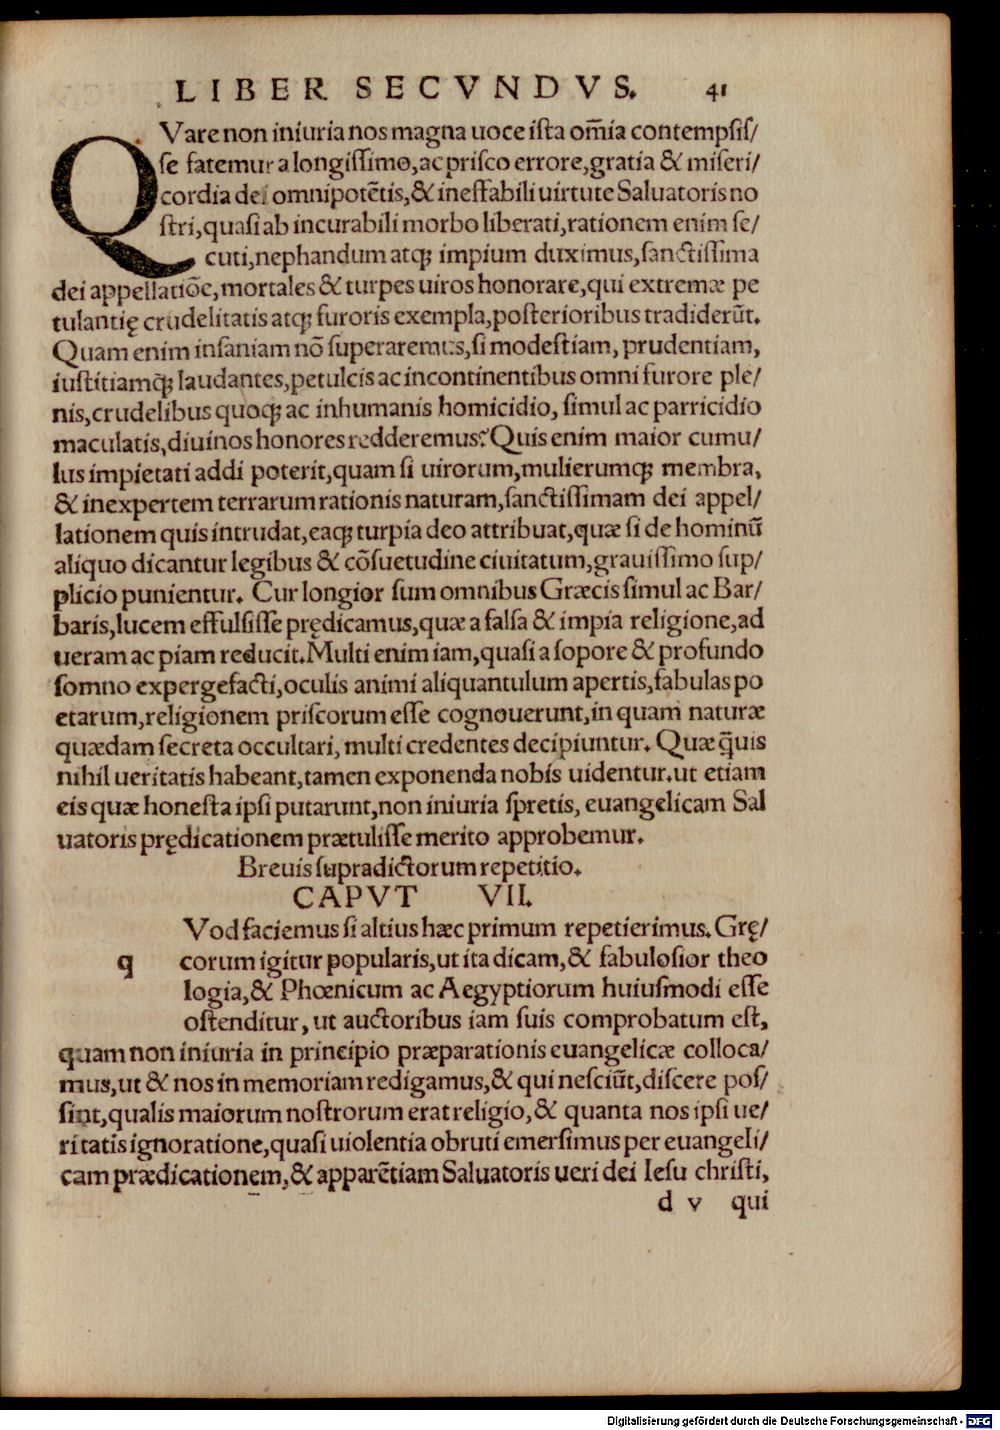 LIBER SECVNDVS. 41
QVare non iniuria nos magna uoce ista om̃ia contempsis/
se fatemur a longissimo, ac prisco errore, gratia & miseri/
cordia dei omnipotẽtis, & ineffabili uirtute Saluatoris no
stri, quasi ab incurabili morbo liberati, rationem enim se/
cuti, nephandum atq; impium duximus, sanctissima
dei appellatiõe, mortales & turpes uiros honorare, qui extremæ pe
tulantię crudelitatis atq; furoris exempla, posterioribus tradiderũt.
Quam enim insaniam nõ superaremus, si modestiam, prudentiam,
iustitiamq; laudantes, petulcis ac incontinentibus omni furore ple/
nis, crudelibus quoq; ac inhumanis homicidio, simul ac parricidio
maculatis, diuinos honores redderemus? Quis enim maior cumu/
lus impietati addi poterit, quam si uirorum, mulierumq; membra,
& inexpertem terrarum rationis naturam, sanctissimam dei appel/
lationem quis intrudat, eaq; turpia deo attribuat, quæ si de hominũ
aliquo dicantur legibus & cõsuetudine ciuitatum, grauissimo sup/
plicio punientur. Cur longior sum omnibus Græcis simul ac Bar/
baris, lucem effulsisse prędicamus, quæ a falsa & impia religione, ad
ueram ac piam reducit. Multi enim iam, quasi a sopore & profundo
somno expergefacti, oculis animi aliquantulum apertis, fabulas po
etarum, religionem priscorum esse cognouerunt, in quam naturæ
quædam secreta occultari, multi credentes decipiuntur. Quæ q̃uis
nihil ueritatis habeant, tamen exponenda nobis uidentur. ut etiam
eis quæ honesta ipsi putarunt, non iniuria spretis, euangelicam Sal
uatoris prędicationem prætulisse merito approbemur.
Breuis supradictorum repetitio.
CAPVT VII.
Vod faciemus si altius hæc primum repetierimus. Grę/
q corum igitur popularis, ut ita dicam, & fabulosior theo
logia, & Phœnicum ac Aegyptiorum huiusmodi esse
ostenditur, ut auctoribus iam suis comprobatum est,
quam non iniuria in principio præparationis euangelicæ colloca/
mus, ut & nos in memoriam redigamus, & qui nesciũt, discere pos/
sint, qualis maiorum nostrorum erat religio, & quanta nos ipsi ue/
ritatis ignoratione, quasi uiolentia obruti emersimus per euangeli/
cam prædicationem, & apparẽtiam Saluatoris ueri dei Iesu christi,
d v qui
Digitalisierung gefördert durch die Deutsche Forschungsgemeinschaft - DFG